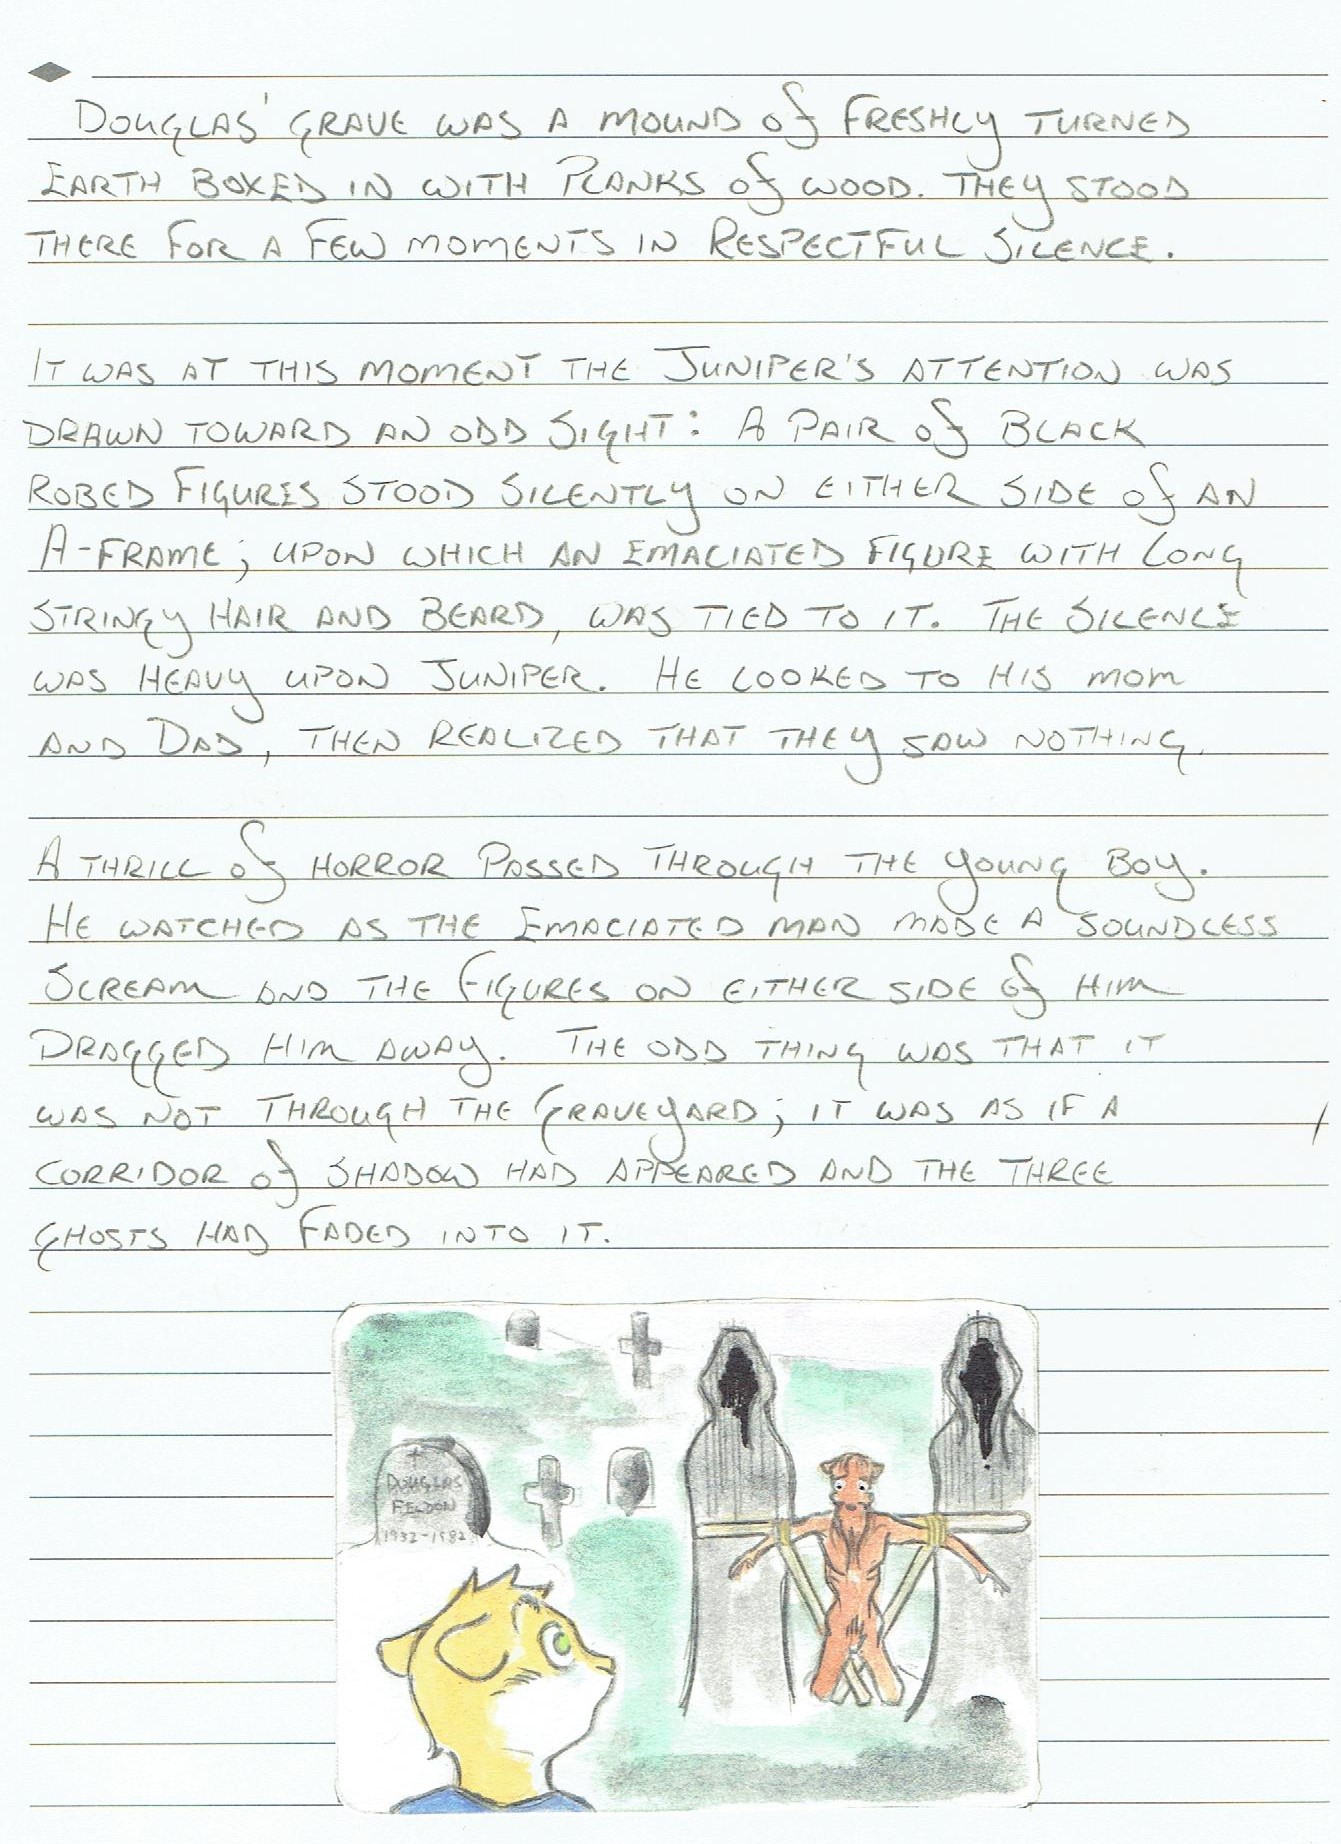 Douglas' grave was a mound of freshly turned
earth boxed in with planks of wood. They stood
there for a few moments in respectful silence.
It was at this moment the Juniper's attention was
drawn toward an odd sight: a pair of black
robed figures stood silently on either side of an
A-frame; upon which an emaciated figure with long
stringy hair and beard, was tied to it. The silence
was heavy upon Juniper. He looked to his mom
and Dad, then realized that they saw nothing.
A thrill of horror passed through the young boy.
He watched as the emaciated man made a soundless
scream and the figures on either side of him
dragged him away. The odd thing was that it
was not through the graveyard; it was as if a
corridor of shadow had appeared and the three
ghosts had faded into it.
DOUGLAS
FELDON
1932-1982